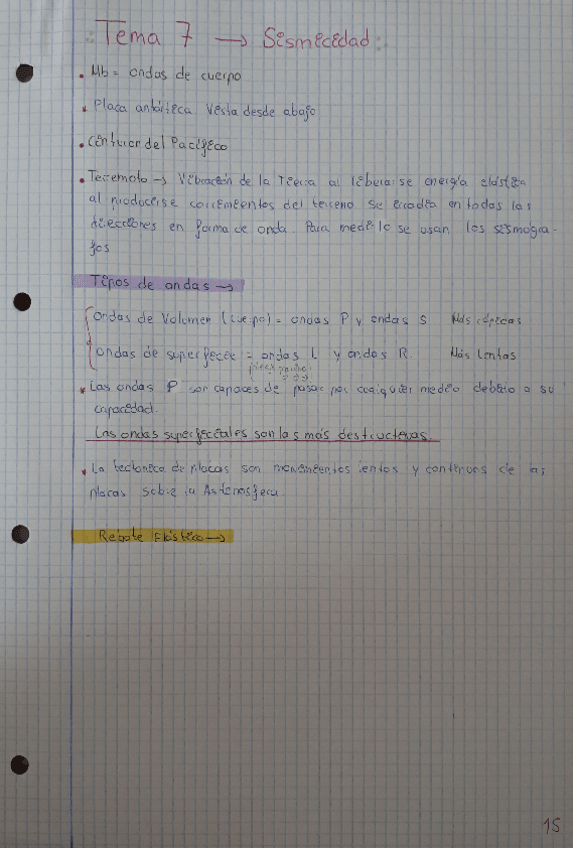 Tema 7 → Sismicidad
• Mb = ondas de cuerpo
• Placa antártica vista desde abajo
• Cinturon del Pacífico
• Terremoto → Vibración de la Tierra al liberarse energía elástica
al producirse corrimientos del terreno se irradia en todas las
direcciones en forma de onda. Para medirlo se usan los sismogra-
fos
Tipos de ondas →
Ondas de Volumen (cuerpo) = ondas P y ondas S Más rápidas
ondas de superficie = ondas L y ondas R. Más lentas
• Las ondas P son capaces de pasar por cualquier medio debido a su
capacidad.
Las ondas superficiales son las más destructivas.
• La tectonica de placas son movimientos lentos y continuos de las
placas sobre la Astenosfera.
Rebote Elástico →
15